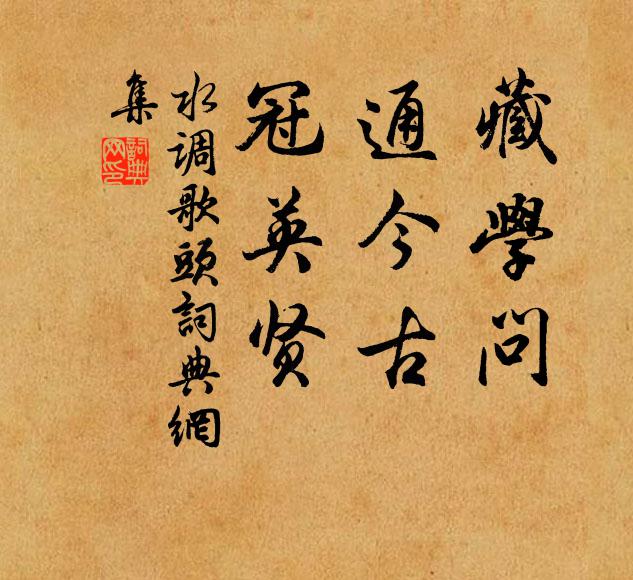 藏學问
通今古
冠英贤
水调歌頭詞典網
集
詞典
网印